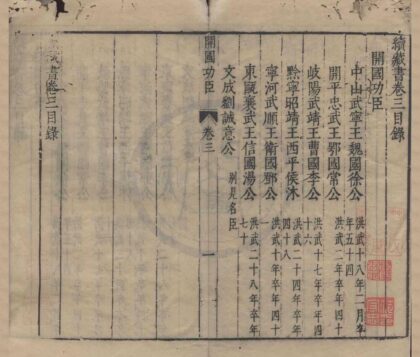 續藏書卷三目錄
開國功臣
中山武寧王魏國徐公 洪武十八年二月卒
年五十四
開平忠武王鄂國常公 洪武二年卒年四十
岐陽武靖王曹國李公 洪武十七年卒年四
十六
黔寧昭靖王西平侯沐 洪武二十四年卒年
四十八
寧河武順王衛國鄧公 洪武十年卒年四十
一
東甌襄武王信國湯公 洪武二十八年卒年
七十
文成劉誠意公 別見名臣
開國功臣 卷三 一
藏書卷三目錄